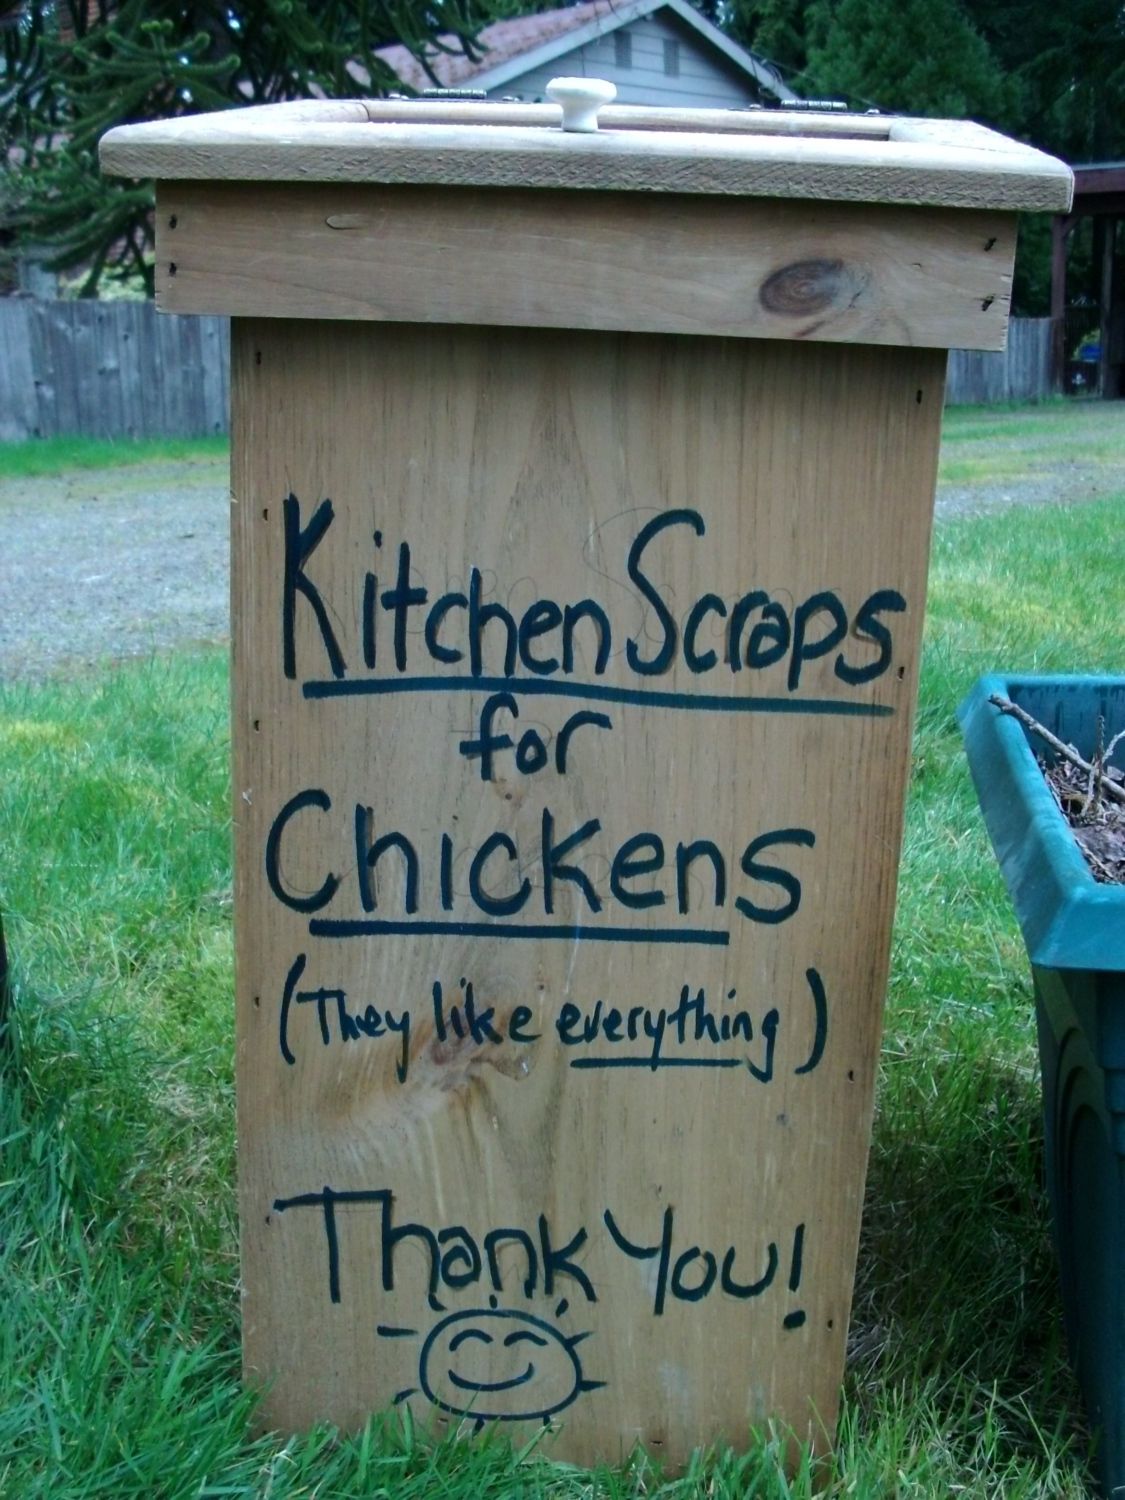 Kitchen Scraps
for
Chickens
(They like everything)
Thank You!